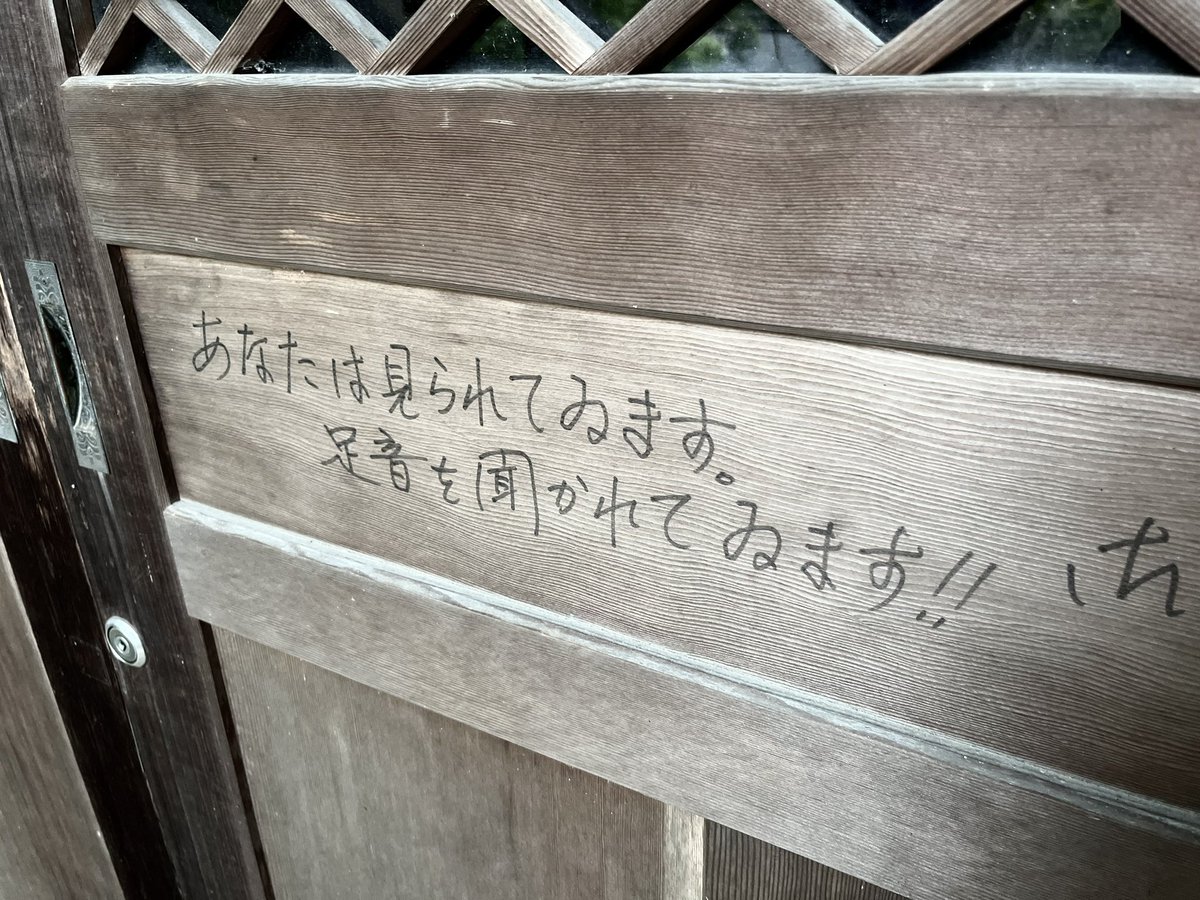 あなたは見られてゐます。
足音を聞かれてゐます!!